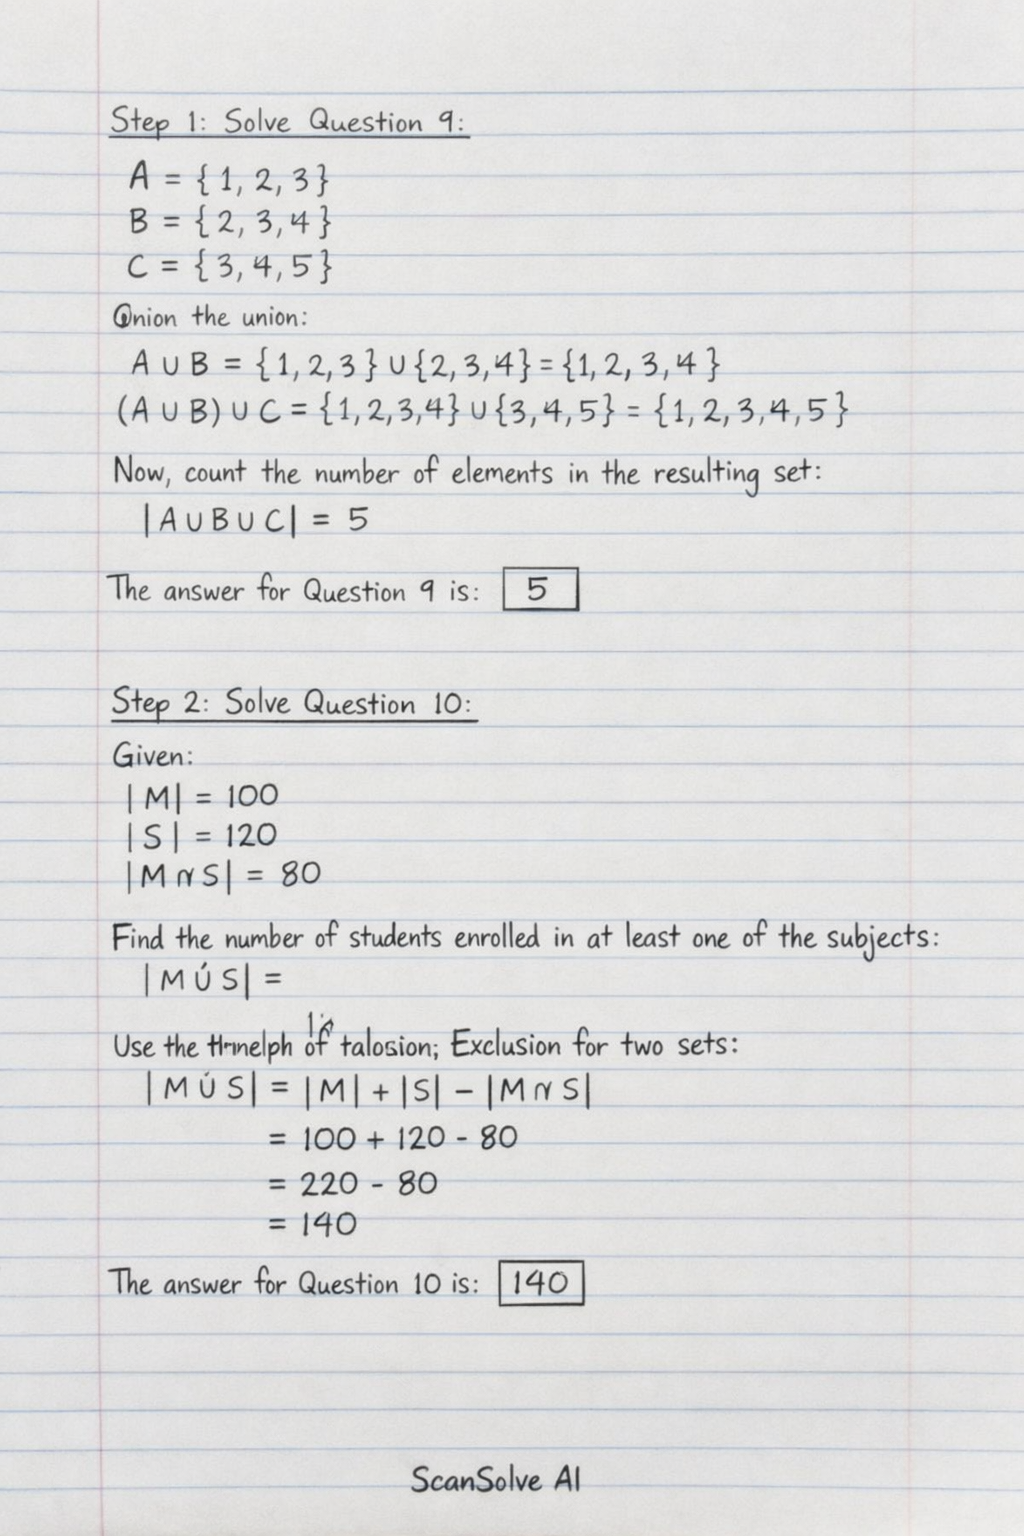 Step 1: Solve Question 9:
A = { 1, 2, 3 }
B = { 2, 3, 4 }
C = { 3, 4, 5 }
Onion the union:
A ∪ B = {1, 2, 3 } ∪ {2, 3, 4} = {1, 2, 3, 4 }
(A ∪ B) ∪ C = {1,2,3,4} ∪ {3, 4, 5} = {1, 2, 3, 4, 5 }
Now, count the number of elements in the resulting set:
|A ∪ B ∪ C| = 5
The answer for Question 9 is: 5
Step 2: Solve Question 10:
Given:
|M| = 100
|S| = 120
|M ∩ S| = 80
Find the number of students enrolled in at least one of the subjects:
|M Ú S| =
Use the of talosion; Exclusion for two sets:
|M Ú S| = |M| + |S| - |M ∩ S|
= 100 + 120 - 80
= 220 - 80
= 140
The answer for Question 10 is: 140
ScanSolve AI